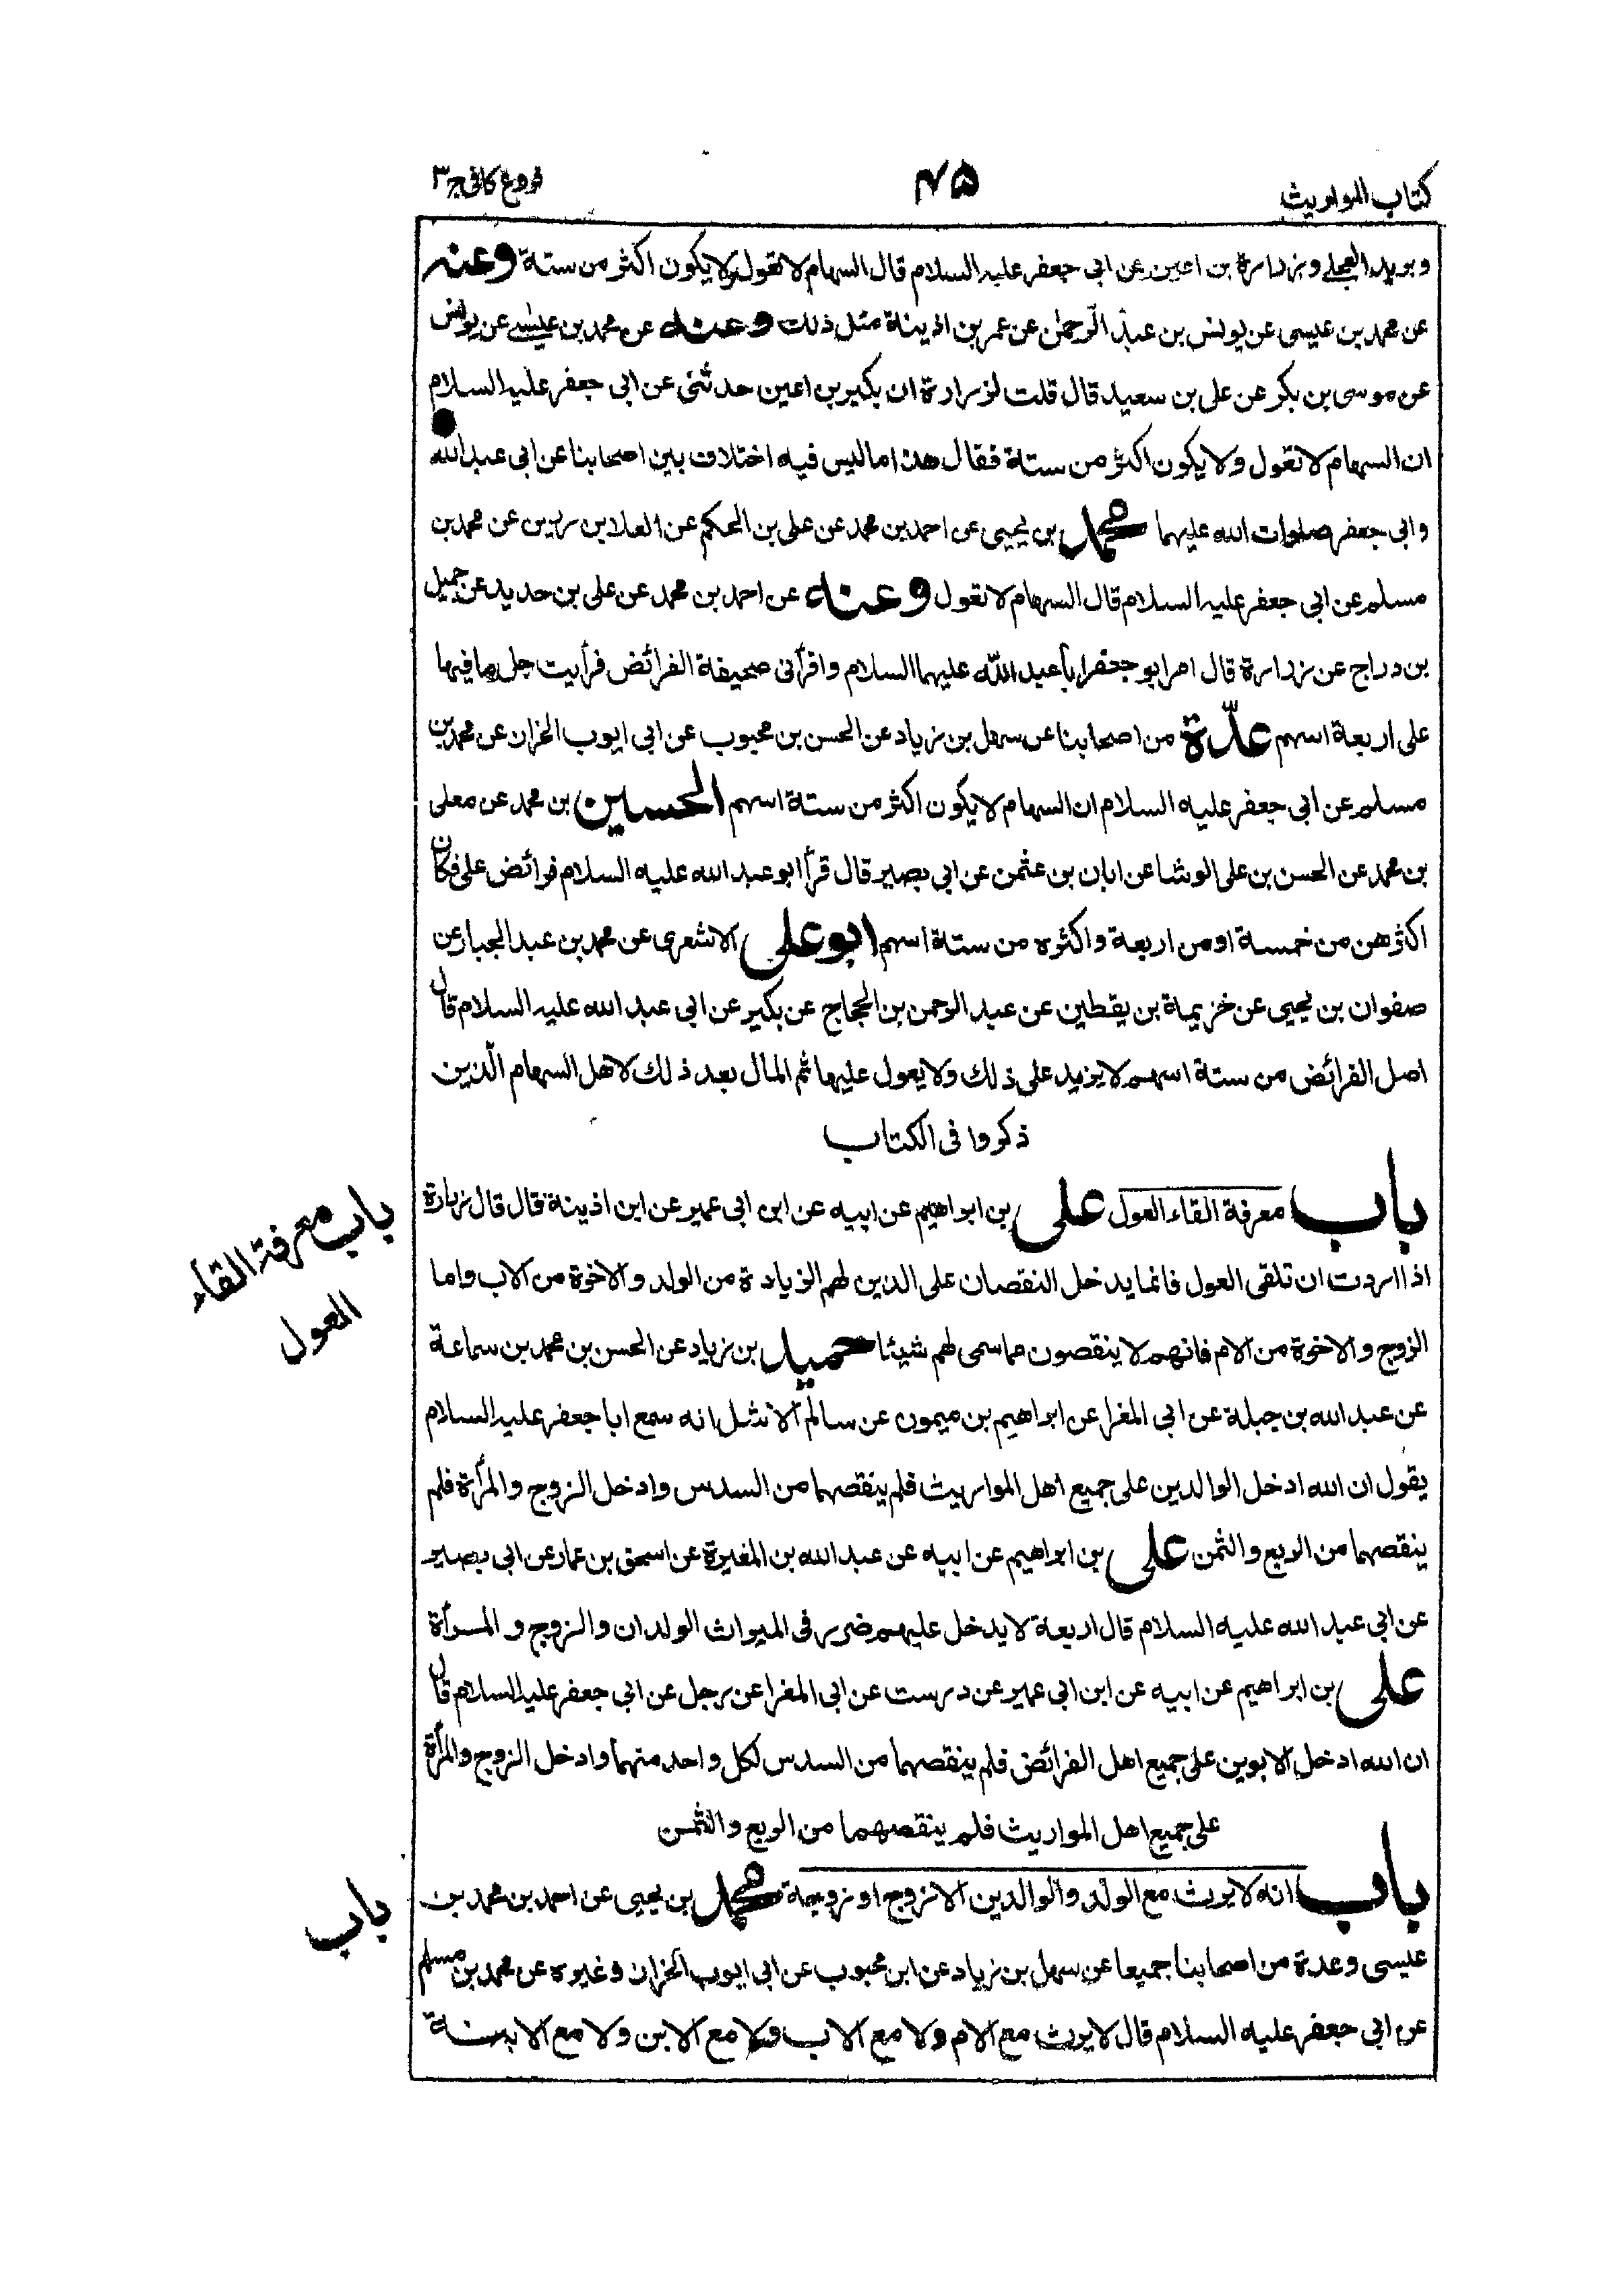 كتاب المواريث
۴۵
فروع كافى ج۳
و بريد العجلے و زرارة بن اعين عن ابى جعفر عليه السلام قال السهام لا تعول ولا يكون اكثر من ستة وعنه
عن محمد بن عيسى عن يونس بن عبد الرحمٰن عن عمر بن اذينة مثل ذلك وعنه عن محمد بن عيسے عن يونس
عن موسى بن بكر عن على بن سعيد قال قلت لزرارة ان بكير بن اعين حدثنى عن ابى جعفر عليه السلام
ان السهام لا تعول ولا يكون اكثر من ستة فقال هذا ما ليس فيه اختلاف بين اصحابنا عن ابى عبد الله
وابى جعفر صلوات الله عليهما محمد بن يحيى عن احمد بن محمد عن على بن الحكم عن العلا بن رزين عن محمد بن
مسلم عن ابى جعفر عليه السلام قال السهام لا تعول وعنه عن احمد بن محمد عن على بن حديد عن جميل
بن دراج عن زرارة قال امر ابو جعفر ابا عبد الله عليهما السلام واقرأنى صحيفة الفرائض فرأيت جل ما فيها
على اربعة اسهم عدّة من اصحابنا عن سهل بن زياد عن الحسن بن محبوب عن ابى ايوب الخزاز عن محمد بن
مسلم عن ابى جعفر عليه السلام ان السهام لا يكون اكثر من ستة اسهم الحسين بن محمد عن معلى
بن محمد عن الحسن بن على الوشا عن ابان بن عثمن عن ابى بصير قال قرأ ابو عبد الله عليه السلام فرائض على فكان
اكثرهن من خمسة او من اربعة و اكثره من ستة اسهم ابو على الاشعرى عن محمد بن عبد الجبار عن
صفوان بن يحيى عن خزيمة بن يقطين عن عبد الرحمن بن الحجاج عن بكير عن ابى عبد الله عليه السلام قال
اصل الفرائض من ستة اسهم لا يزيد على ذلك ولا يعول عليها ثم المال بعد ذلك لاهل السهام الّذين
ذكروا فى الكتاب
باب معرفة القاء العول على بن ابراهيم عن ابيه عن ابن ابى عمير عن ابن اذينة قال قال زرارة
اذا اردت ان تلقى العول فانما يدخل النقصان على الذين لهم الزيادة من الولد والاخوة من الاب واما
الزوج والاخوة من الام فانهم لا ينقصون مما سمى لهم شيئا حميد بن زياد عن الحسن بن محمد بن سماعة
عن عبد الله بن جبلة عن ابى المغرا عن ابراهيم بن ميمون عن سالم الاشل انه سمع ابا جعفر عليه السلام
يقول ان الله ادخل الوالدين على جميع اهل المواريث فلم ينقصهما من السدس وادخل الزوج والمرأة فلم
ينقصهما من الربع والثمن على بن ابراهيم عن ابيه عن عبد الله بن المغيرة عن اسحق بن عمار عن ابى بصير
عن ابى عبد الله عليه السلام قال اربعة لا يدخل عليهم ضرر فى الميراث الوالدان والزوج و المرأة
على بن ابراهيم عن ابيه عن ابن ابى عمير عن درست عن ابى المغرا عن رجل عن ابى جعفر عليه السلام قال
ان الله ادخل الابوين على جميع اهل الفرائض فلم ينقصهما من السدس لكل واحد منهما وادخل الزوج والمرأة
على جميع اهل المواريث فلم ينقصهما من الربع والثمن
باب انه لا يرث مع الولد والوالدين الا زوج او زوجة محمد بن يحيى عن احمد بن محمد بن
عيسى وعدة من اصحابنا جميعا عن سهل بن زياد عن ابن محبوب عن ابى ايوب الخزاز وغيره عن محمد بن مسلم
عن ابى جعفر عليه السلام قال لا يرث مع الام ولا مع الاب ولا مع الابن ولا مع الابنة
باب معرفة القأء
العول
باب